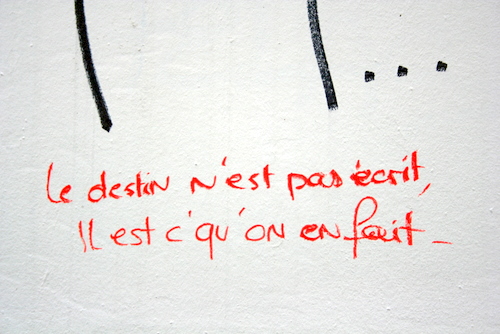 ...
Le destin n'est pas écrit,
Il est c'qu'on en fait_